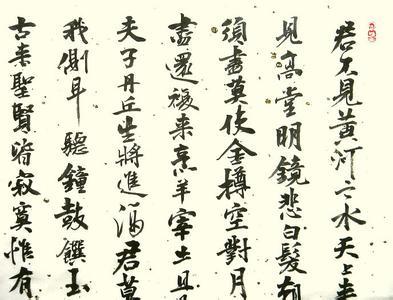 君不見黄河之水天上来
見高堂明鏡悲白髮
須盡莫使金樽空對月
盡還復来烹羊宰牛且
夫子丹丘生將進酒君莫
我側耳聽鐘鼓饌玉
古来聖賢皆寂寞惟有